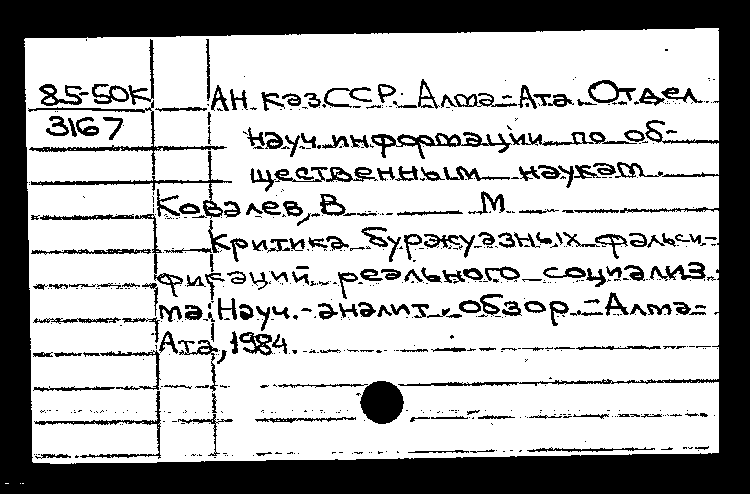 85-50К АН КазССР. Алма-Ата. Отдел
3167 науч. информации по об-
щественным наукам.
Ковалев, В М
Критика буржуазных фальси-
фикаций реального социализ-
ма: Науч.-аналит. обзор.-Алма-
Ата, 1984.